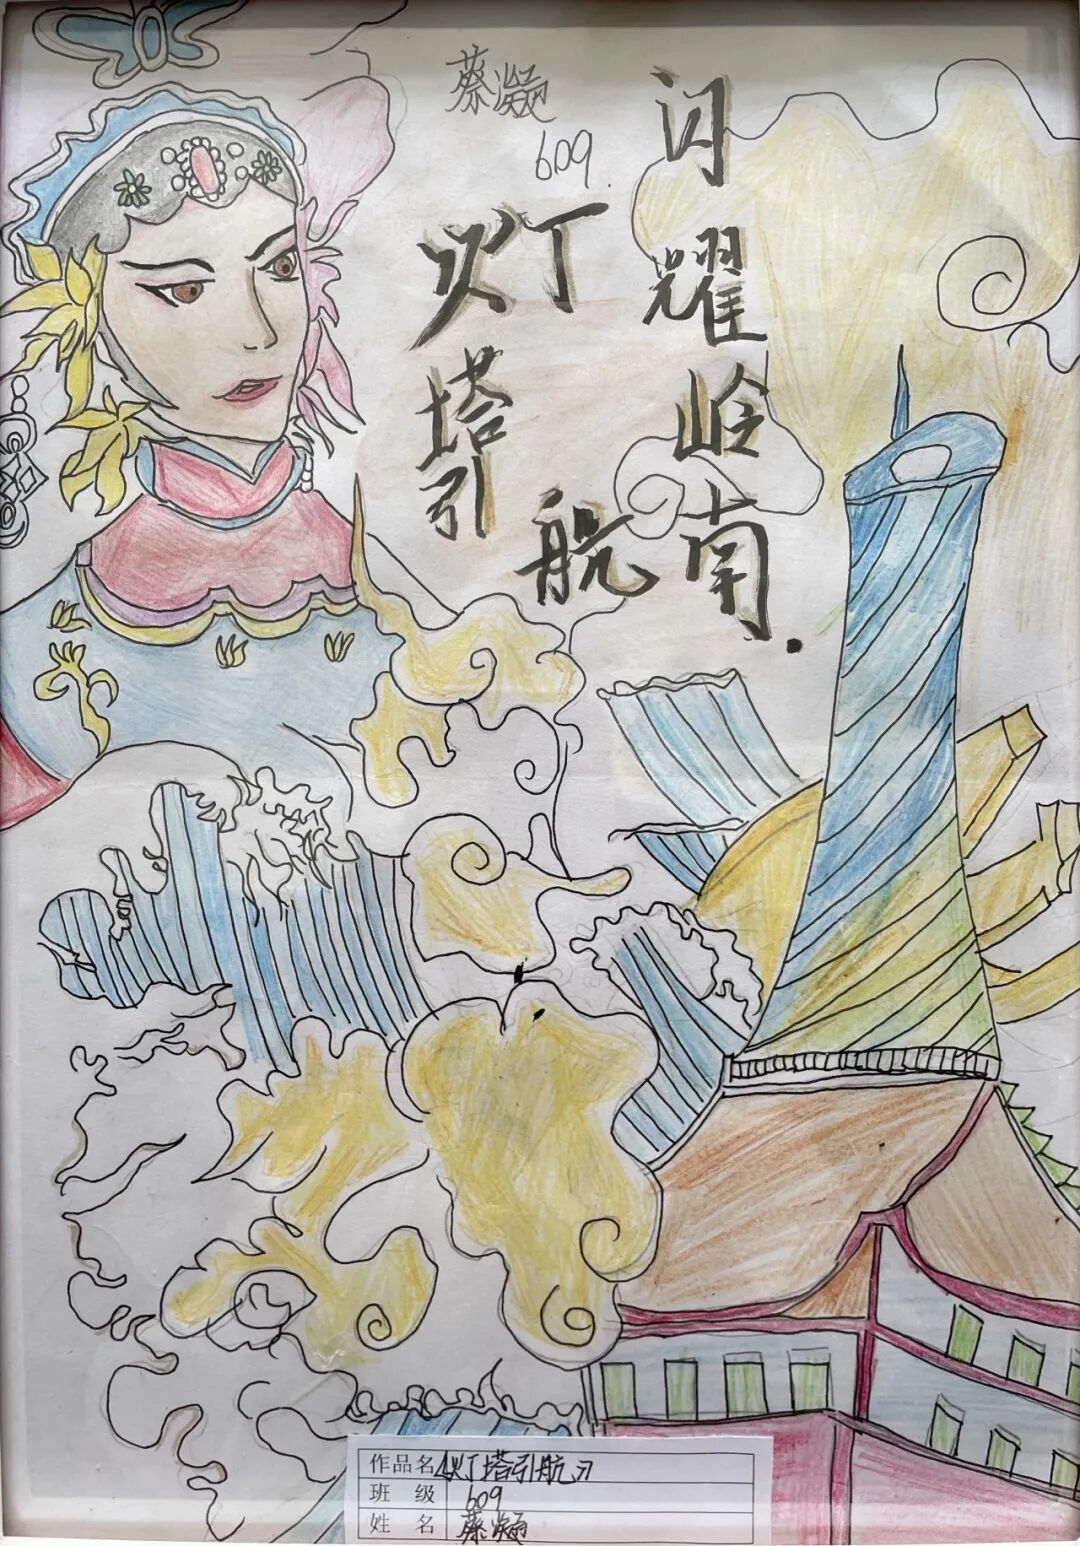 蔡
609.
灯塔引航
闪耀岭南.
作品名 《灯塔引航》
班 级 609
姓 名 蔡